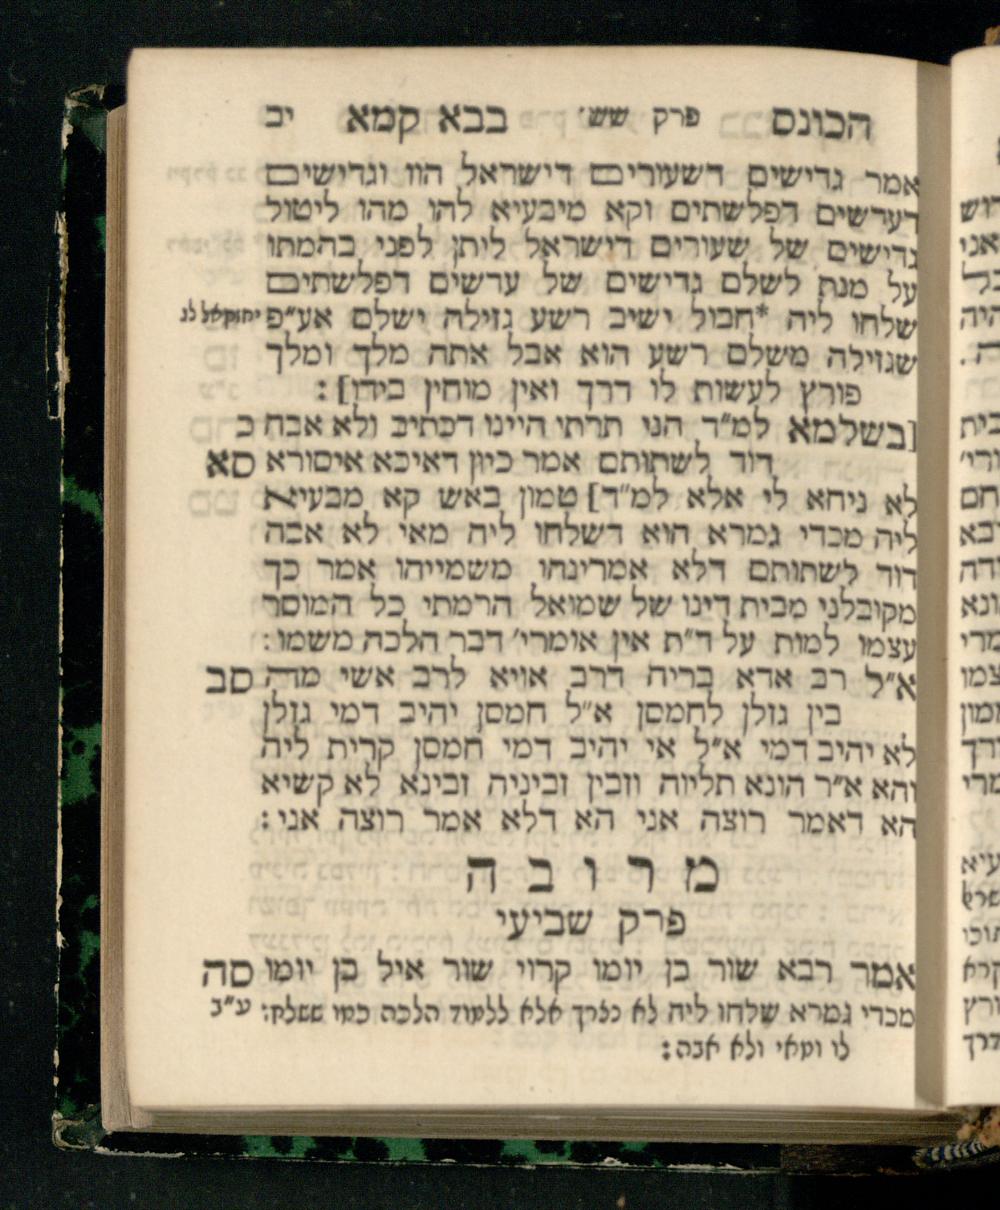 הכונס פרק שש׳ בבא קמא יב
אמר גדישים דשעורים דישראל הוו וגדישים
דערשים דפלשתים וקא מיבעיא להו מהו ליטול
גדישים של שעורים דישראל ליתן לפני בהמתו
על מנת לשלם גדישים של ערשים דפלשתים
שלחו ליה *חבול ישיב רשע גזילה ישלם אע״פ יחזקאל לג
שגזילה משלם רשע הוא אבל אתה מלך ומלך
פורץ לעשות לו דרך ואין מוחין בידו] :
[בשלמא למ״ד הני תרתי היינו דכתיב ולא אבה כ
דוד לשתותם אמר כיון דאיכא איסורא סא
לא ניחא לי אלא למ״ד] טמון באש קא מבעיא
ליה מכדי גמרא הוא דשלחו ליה מאי לא אבה
דוד לשתותם דלא אמרינהו משמייהו אמר כך
מקובלני מבית דינו של שמואל הרמתי כל המוסר
עצמו למות על ד״ת אין אומרי׳ דבר הלכה משמו :
א״ל רב אדא בריה דרב אויא לרב אשי מה סב
בין גזלן לחמסן א״ל חמסן יהיב דמי גזלן
לא יהיב דמי א״ל אי יהיב דמי חמסן קרית ליה
והא א״ר הונא תליוה וזבין זביניה זבינא לא קשיא
הא דאמר רוצה אני הא דלא אמר רוצה אני :
מרובה
פרק שביעי
אמר רבא שור בן יומו קרוי שור איל בן יומו סה
מכדי גמרא שלחו ליה לא נצרך אלא ללמוד הלכה כמו ששלחו ע״ב
לו ומאי ולא אבה :